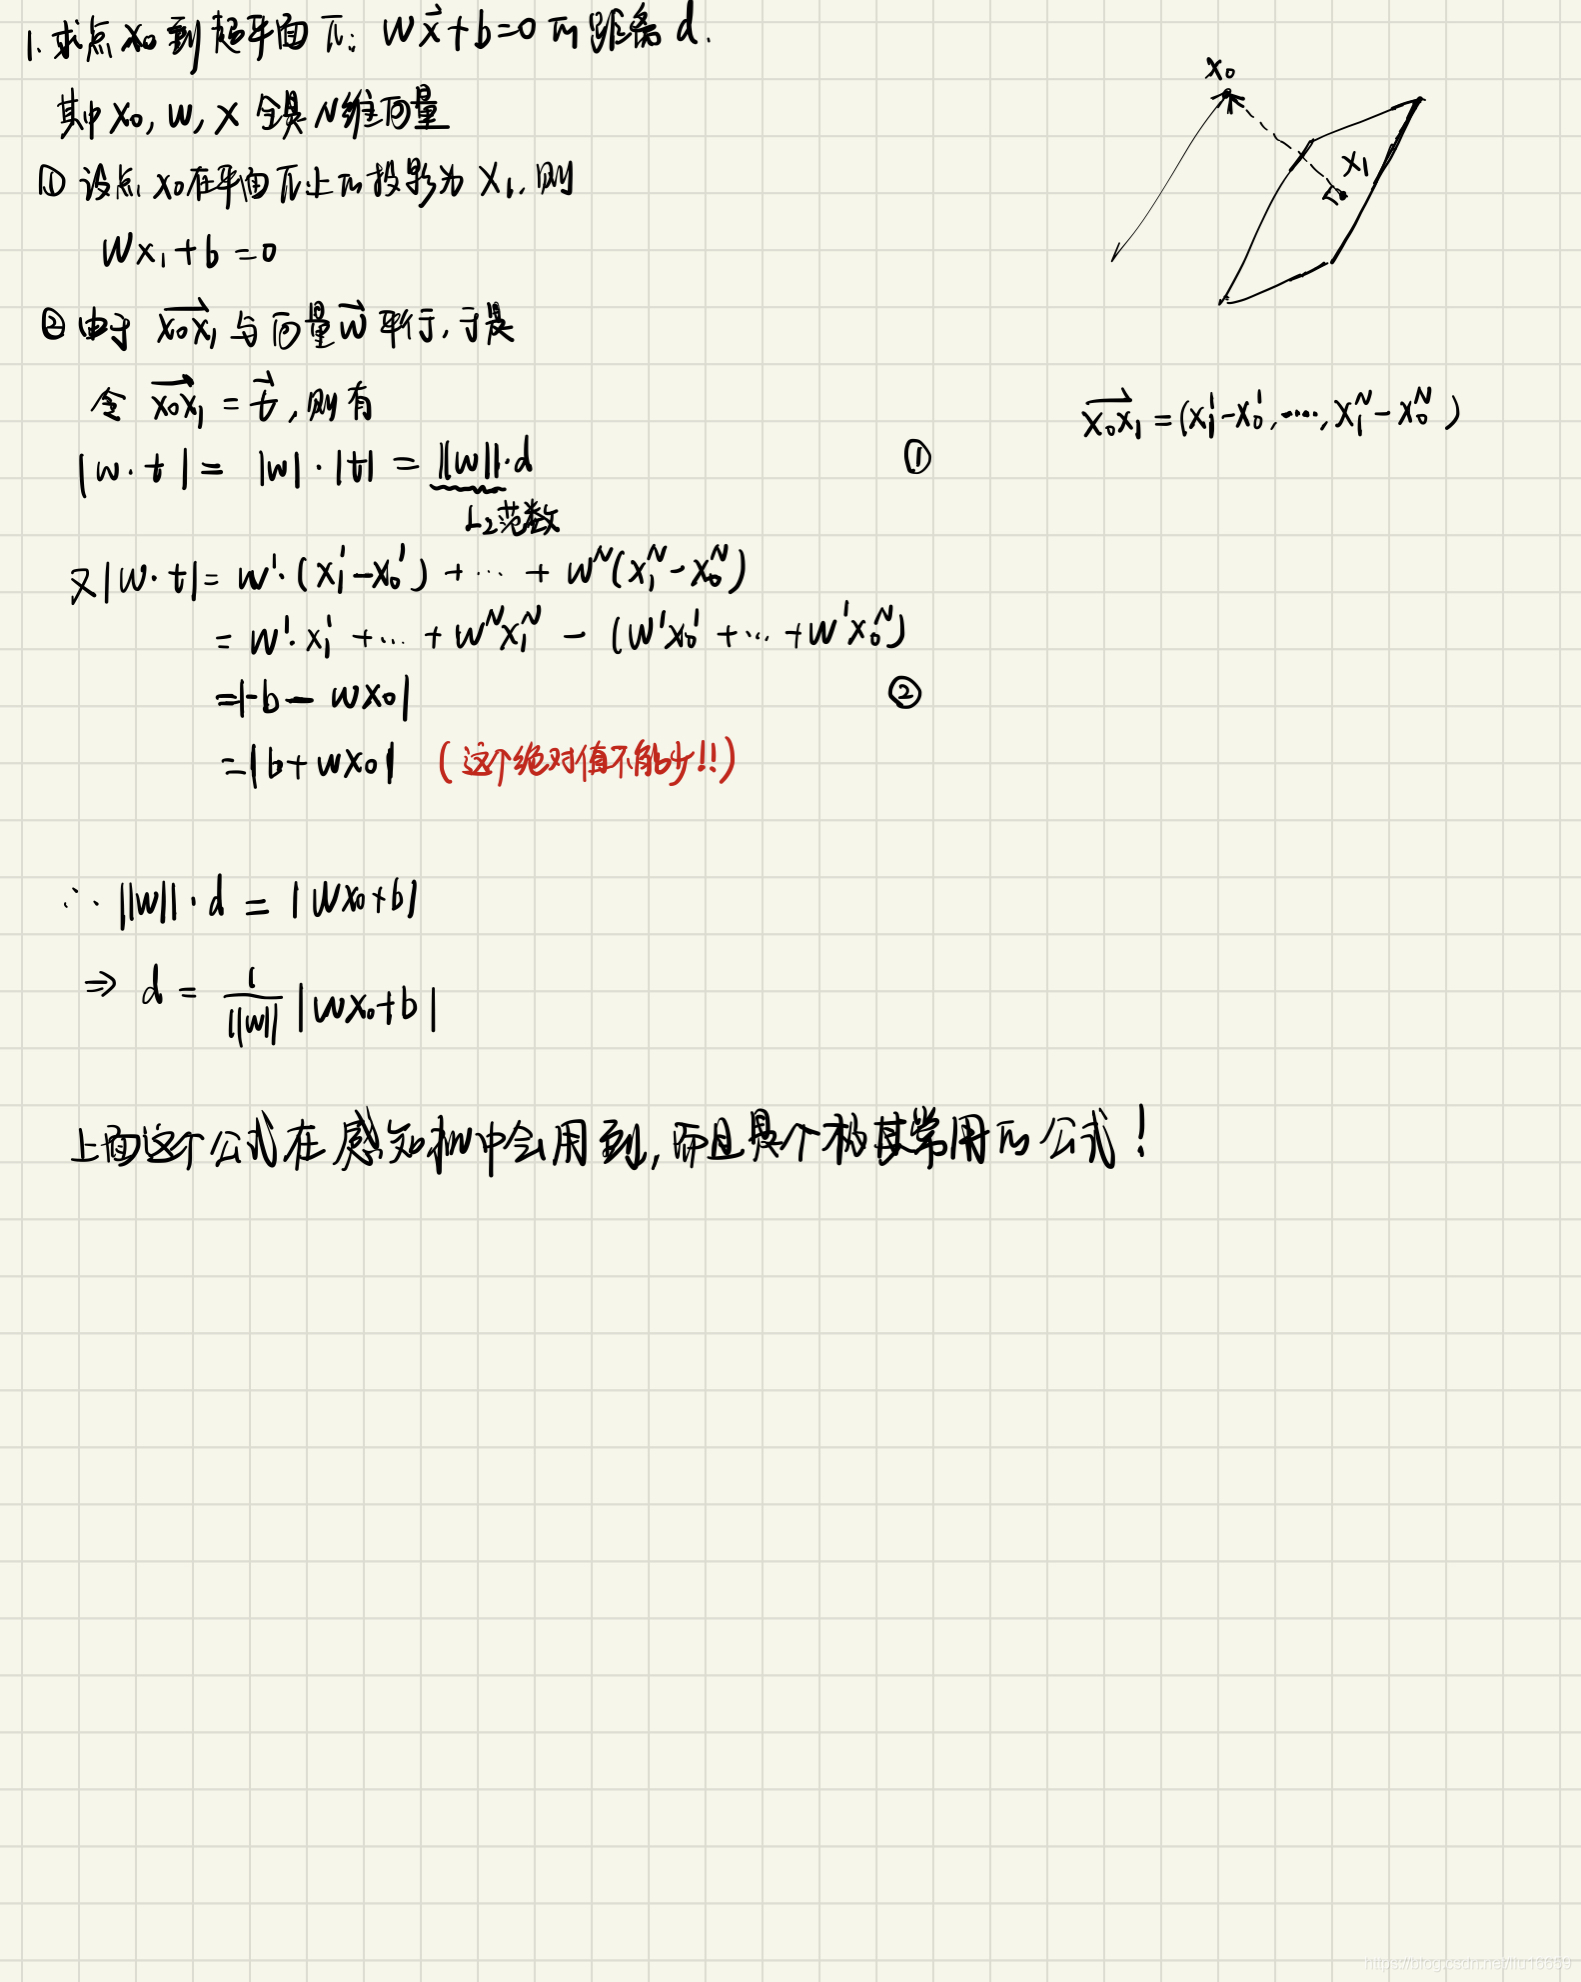 1. 求点 x₀ 到超平面 π: w x⃗ + b = 0 的距离 d.
其中 x₀, w, x 全是 N维向量
① 设点 x₀ 在平面 π 上的投影为 x₁, 则
w x₁ + b = 0
② 由于 x₀x₁→ 与向量 w⃗ 平行, 于是
令 x₀x₁→ = t⃗, 则有
|w·t| = |w|·|t| = ||w||·d ①
L₂范数
又|w·t| = w¹·(x₁¹-x₀¹) + ... + w^N(x₁^N - x₀^N)
= w¹·x₁¹ + ... + w^N x₁^N - (w¹x₀¹ + ... + w¹x₀^N)
= |-b - wx₀| ②
= |b + wx₀| (这个绝对值不能少!!)
∴ ||w||·d = |wx₀+b|
⇒ d = 1/||w|| |wx₀+b|
上面这个公式在感知机中会用到, 而且是个极其常用的公式!
x₀
x₁
x₀x₁→ = (x₁¹-x₀¹, ......, x₁^N - x₀^N)